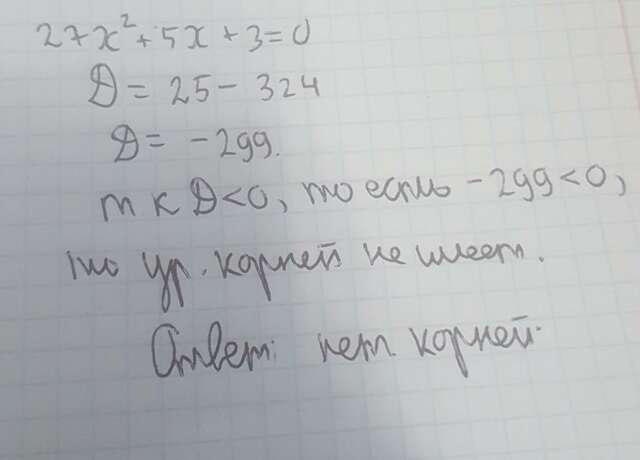 27x²+5x+3=0
D = 25 - 324
D = -299.
т к D<0, то есть -299<0,
то ур. корней не имеет.
Ответ: нет корней.